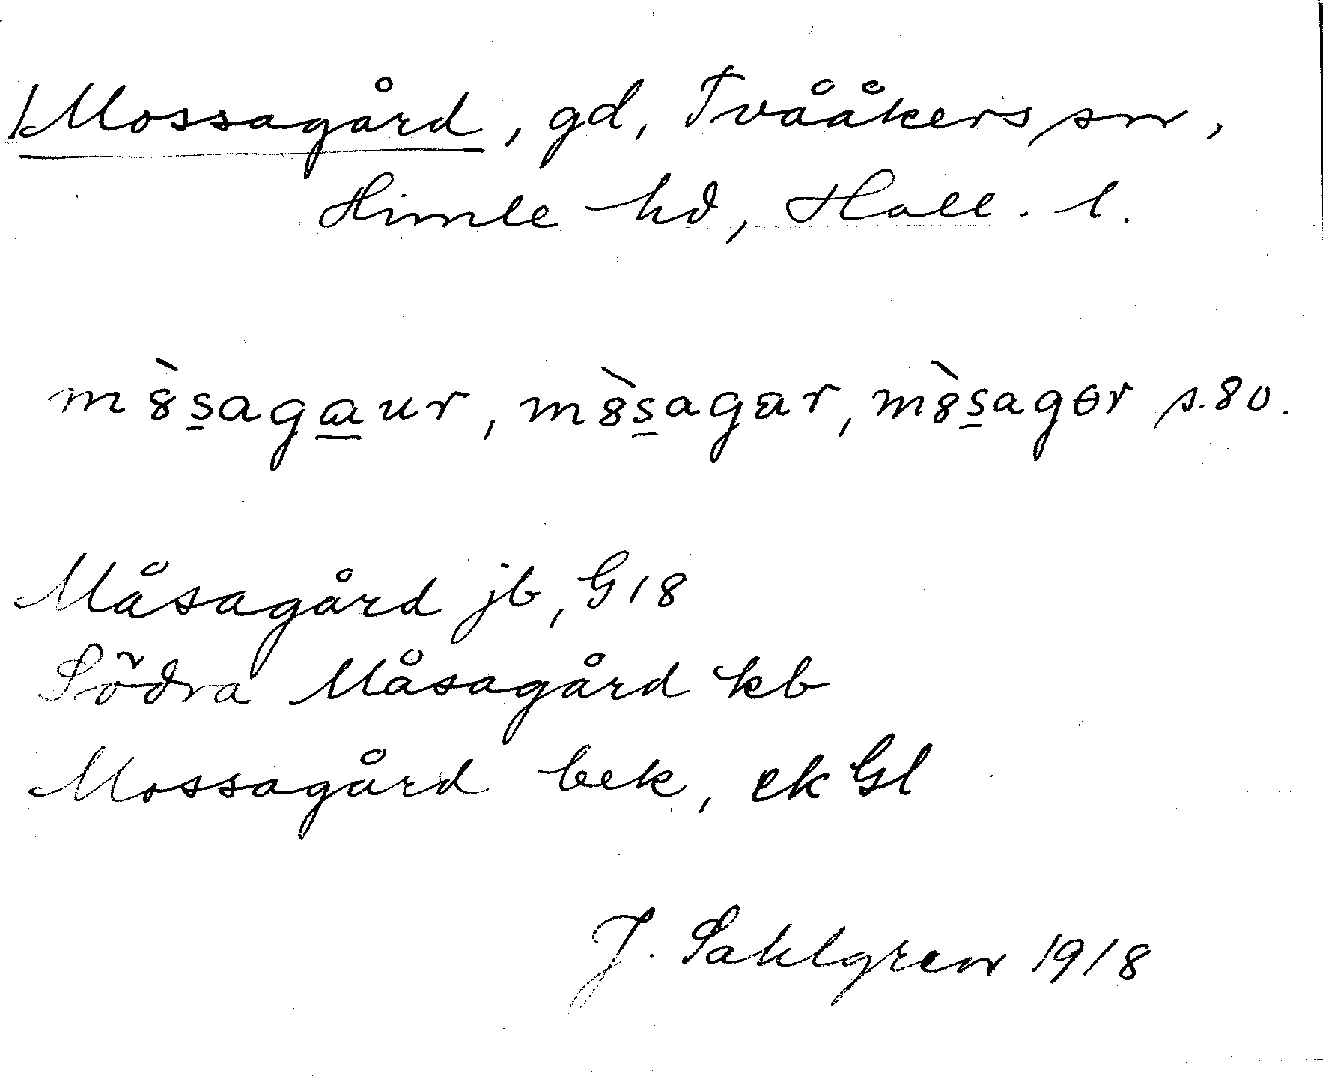 Mossagård, gd, Tvååkers sn,
Himle hd, Hall. l.
m8̀s̲aga̲ur, m8̀s̲agar, m8̀s̲agɵr s. 80.
Måsagård jb, G18
Södra Måsagård kb
Mossagård bek, ek Gl
J. Sahlgren 1918